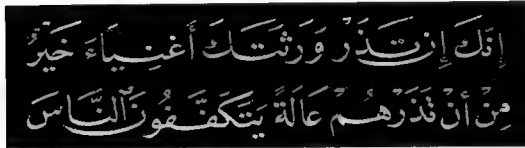 إِنَّكَ إِن تَذَرْ وَرَثَتَكَ أَغْنِيَاءَ خَيْرٌ
مِنْ أَنْ تَذَرَهُمْ عَالَةً يَتَكَفَّفُونَ ٱلنَّاسَ